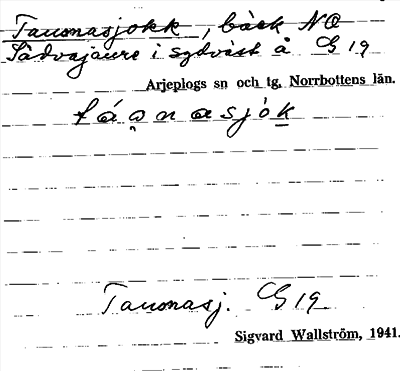 Taumasjokk, bäck NO
Sädvajaure i sydväst å G 19
Arjeplogs sn och tg, Norrbottens län.
Taumasj. G 19.
Sigvard Wallström, 1941.